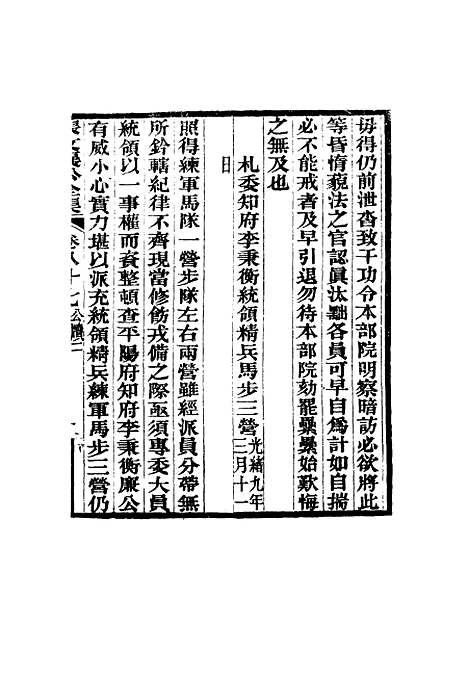 毋得仍前泄沓致干功令本部院明察暗訪必欲將此
等昏惰藐法之官認眞汰黜各員可早自爲計如自揣
必不能戒者及早引退勿待本部院劾罷纍纍始歎悔
之無及也
札委知府李秉衡統領精兵馬步三營光緒九年三月十一
日
照得練軍馬隊一營步隊左右兩營雖經派員分帶無
所鈐轄紀律不齊現當修飭戎備之際亟須專委大員
統領以一事權而資整頓查平陽府知府李秉衡廉公
有威小心實力堪以派充統領精兵練軍馬步三營仍
卷八十七公牘二